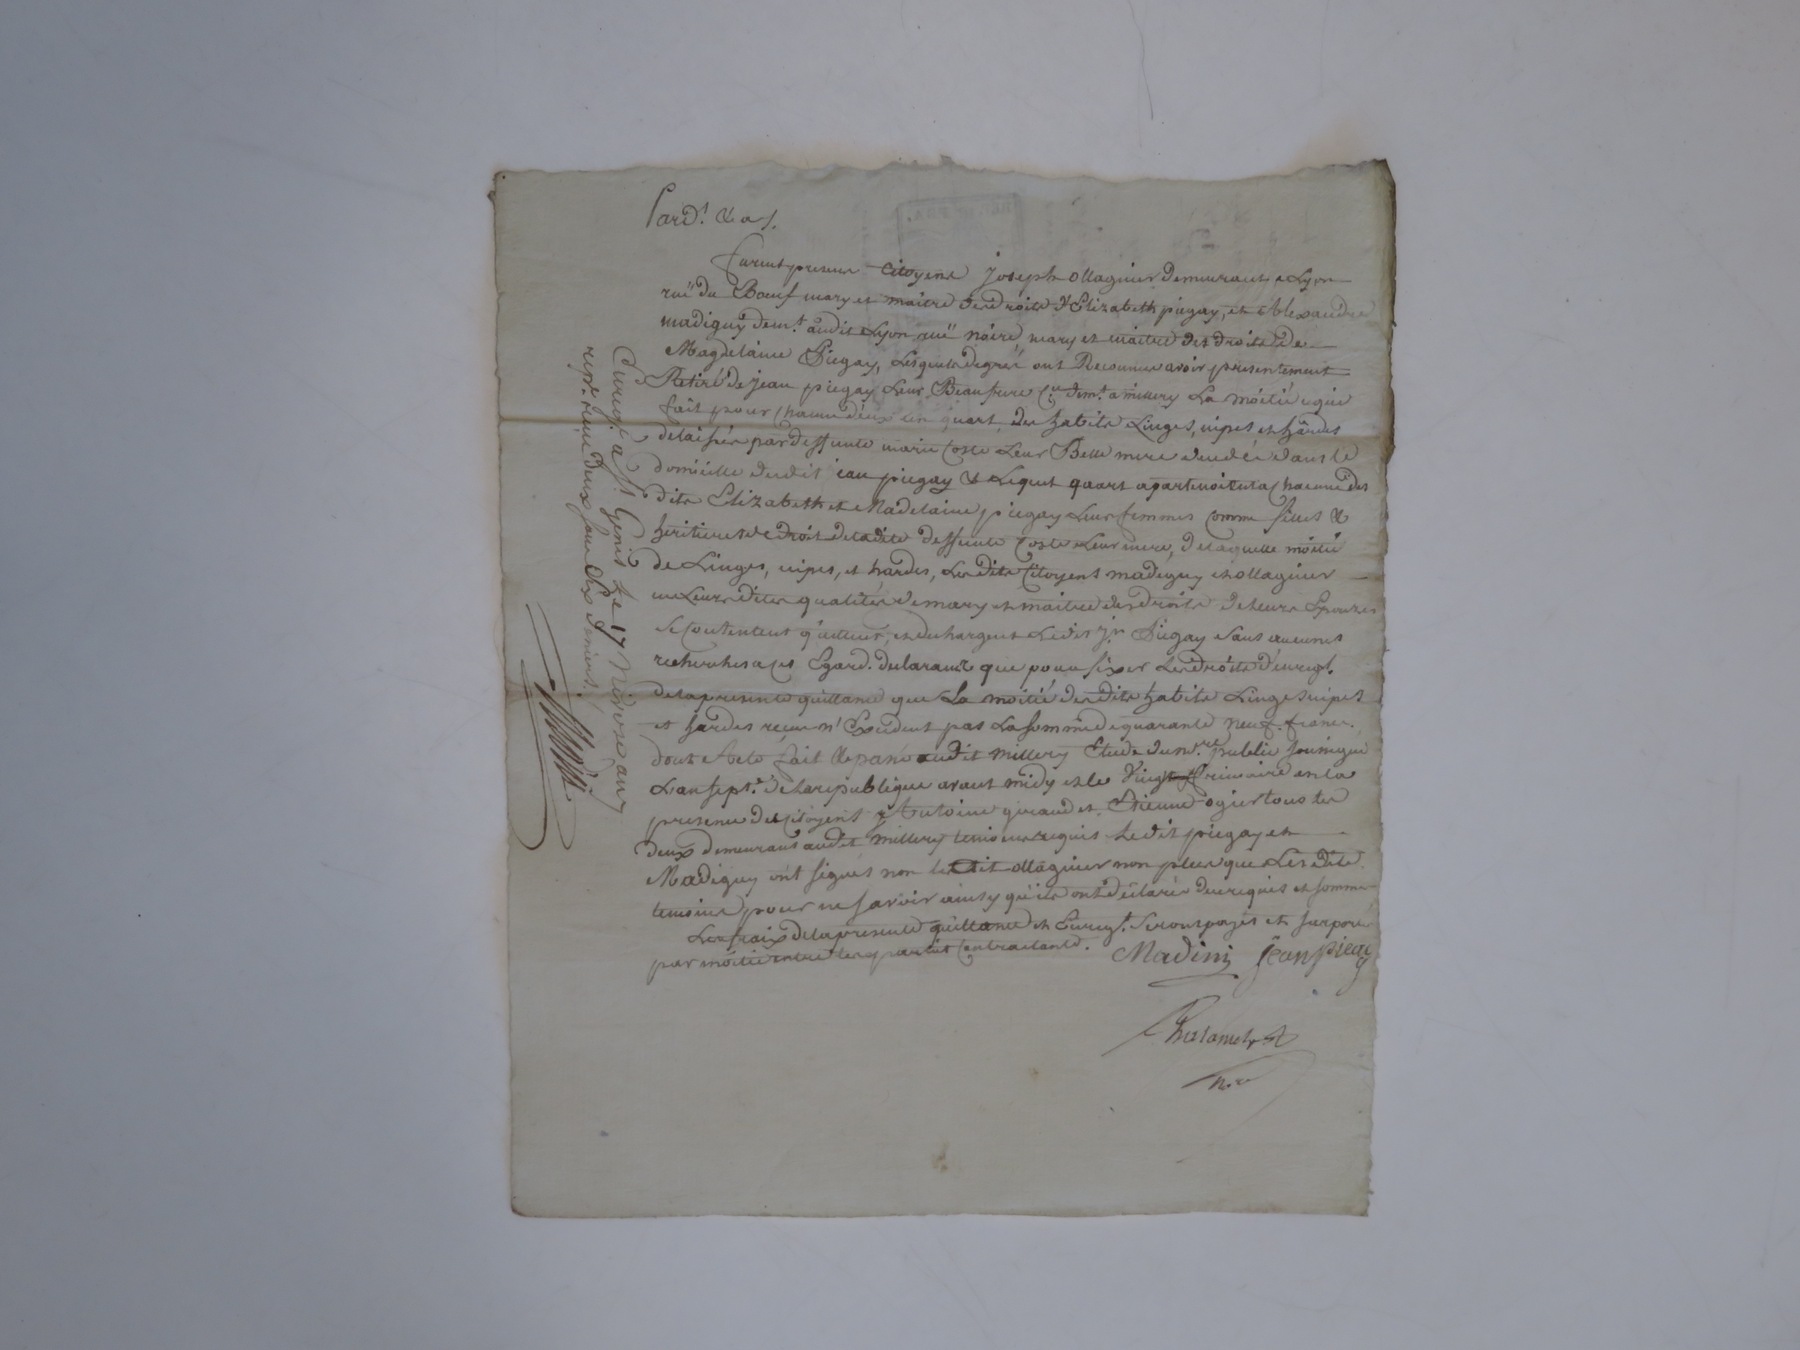 Pard.t & a
furent presens Citoyens joseph ollagnier Demeurant a Lyon
rüe du Bœuf mary et maitre des droits d'Elizabeth piegay, et Alexandre
madiguy dem.t audit Lyon rüe noire, mary et maitre des droits de
Magdelaine Piegay, Lesquels degré ont Reconnu avoir presentement
Retiré de jean piegay Leur Beaufrere C.en dem.t a millery La moitié qui
fait pour chacun d'eux un quart des habits Linges, nipes et hardes
delaissés par deffunte marie Coste Leur Belle mere decedée dans le
domicille dudit jean piegay & Lequel quart apartenoit a chacune des
dites Elizabeth et Madelaine piegay Leurs femmes comme filles &
heritieres de droit deladite deffunte Coste Leur mere, De laquelle moitié
de Linges, nipes, et hardes, Lesdits Citoyens madiguy et ollagnier
en Leurs dites qualités de mary et maitre des droits de Leurs Epouzes
se Contentent quittent, et dechargent Ledit j.n Piegay sans aucunes
recherches a ces Egard. declarant que pour fixer Les droits d'enregt.
delapresente quittance que La moitié desdits habits Linges nipes
et hardes reçue n'Excedent pas La somme de quarante neuf francs.
dont Acte fait & passé audit millery Etude du n.re public soussigné
L'an sept.e de la republique avant midy et le Vingt frimaire en la
presence des Citoyens Antoine giraud et Etienne ogier tous les
deux demeurans audit millery temoins requis Ledit piegay et
Madiguy ont signés non ledit ollagnier non plus que Lesdits
temoins pour ne savoir ainsy qu'ils ont déclarés de ce requis et sommés
Les fraix de la presente quittance et Enreg.t seront payés et suporé
par moitié entre les parties Contractantes. Madini jean piegay
n.re
Enreg.t a St. Genis Le 17 Nivose an 7
reçu deux francs dix Centimes